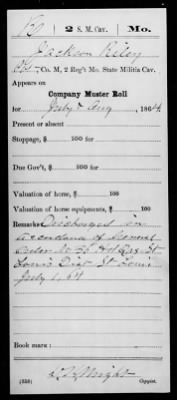 R | 2 S. M. Cav. | Mo.
Jackson Riley
Co. M, 2 Reg't Mo. State Militia Cav.
Appears on
Company Muster Roll
for July & Aug, 1864.
Present or absent
Stoppage, $ 100 for
Due Gov't, $ 100 for
Valuation of horse, $ 100
Valuation of horse equipments, $ 100
Remarks: Discharged in
accordance of General
Order No
Louis Dist St Louis
July 1, 64
Book mark:
(358)
Wright
Copyist.